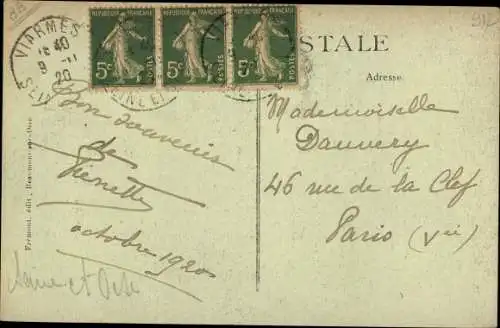 VIARMES
16 40
9 - 11
20
REPUBLIQUE FRANÇAISE
5c
POSTES
REPUBLIQUE FRANÇAISE
5c
POSTES
REPUBLIQUE FRANÇAISE
5c
POSTES
SEINE ET
STALE
Adresse
Bon souvenir
de
octobre 1920
Seine et Oise
Mademoiselle
Dauvery
46 rue de la Clef
Paris (Ve)
Frémont, édit., Beaumont-sur-Oise